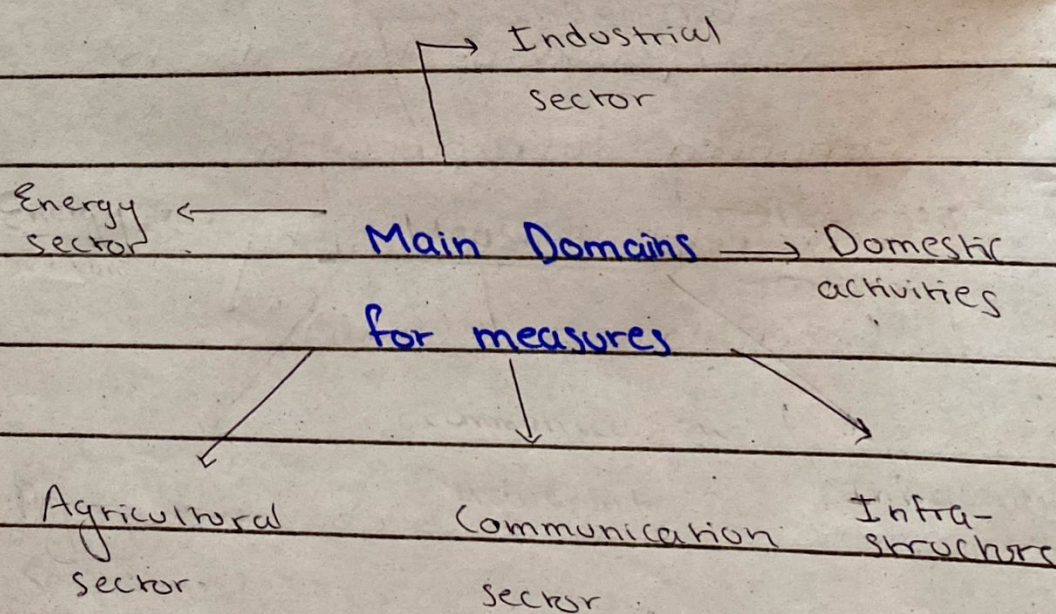 Industrial
sector
Energy
sector
Main Domains
Domestic
activities
for measures
Agricultural
sector
Communication
sector
Infra-
structure